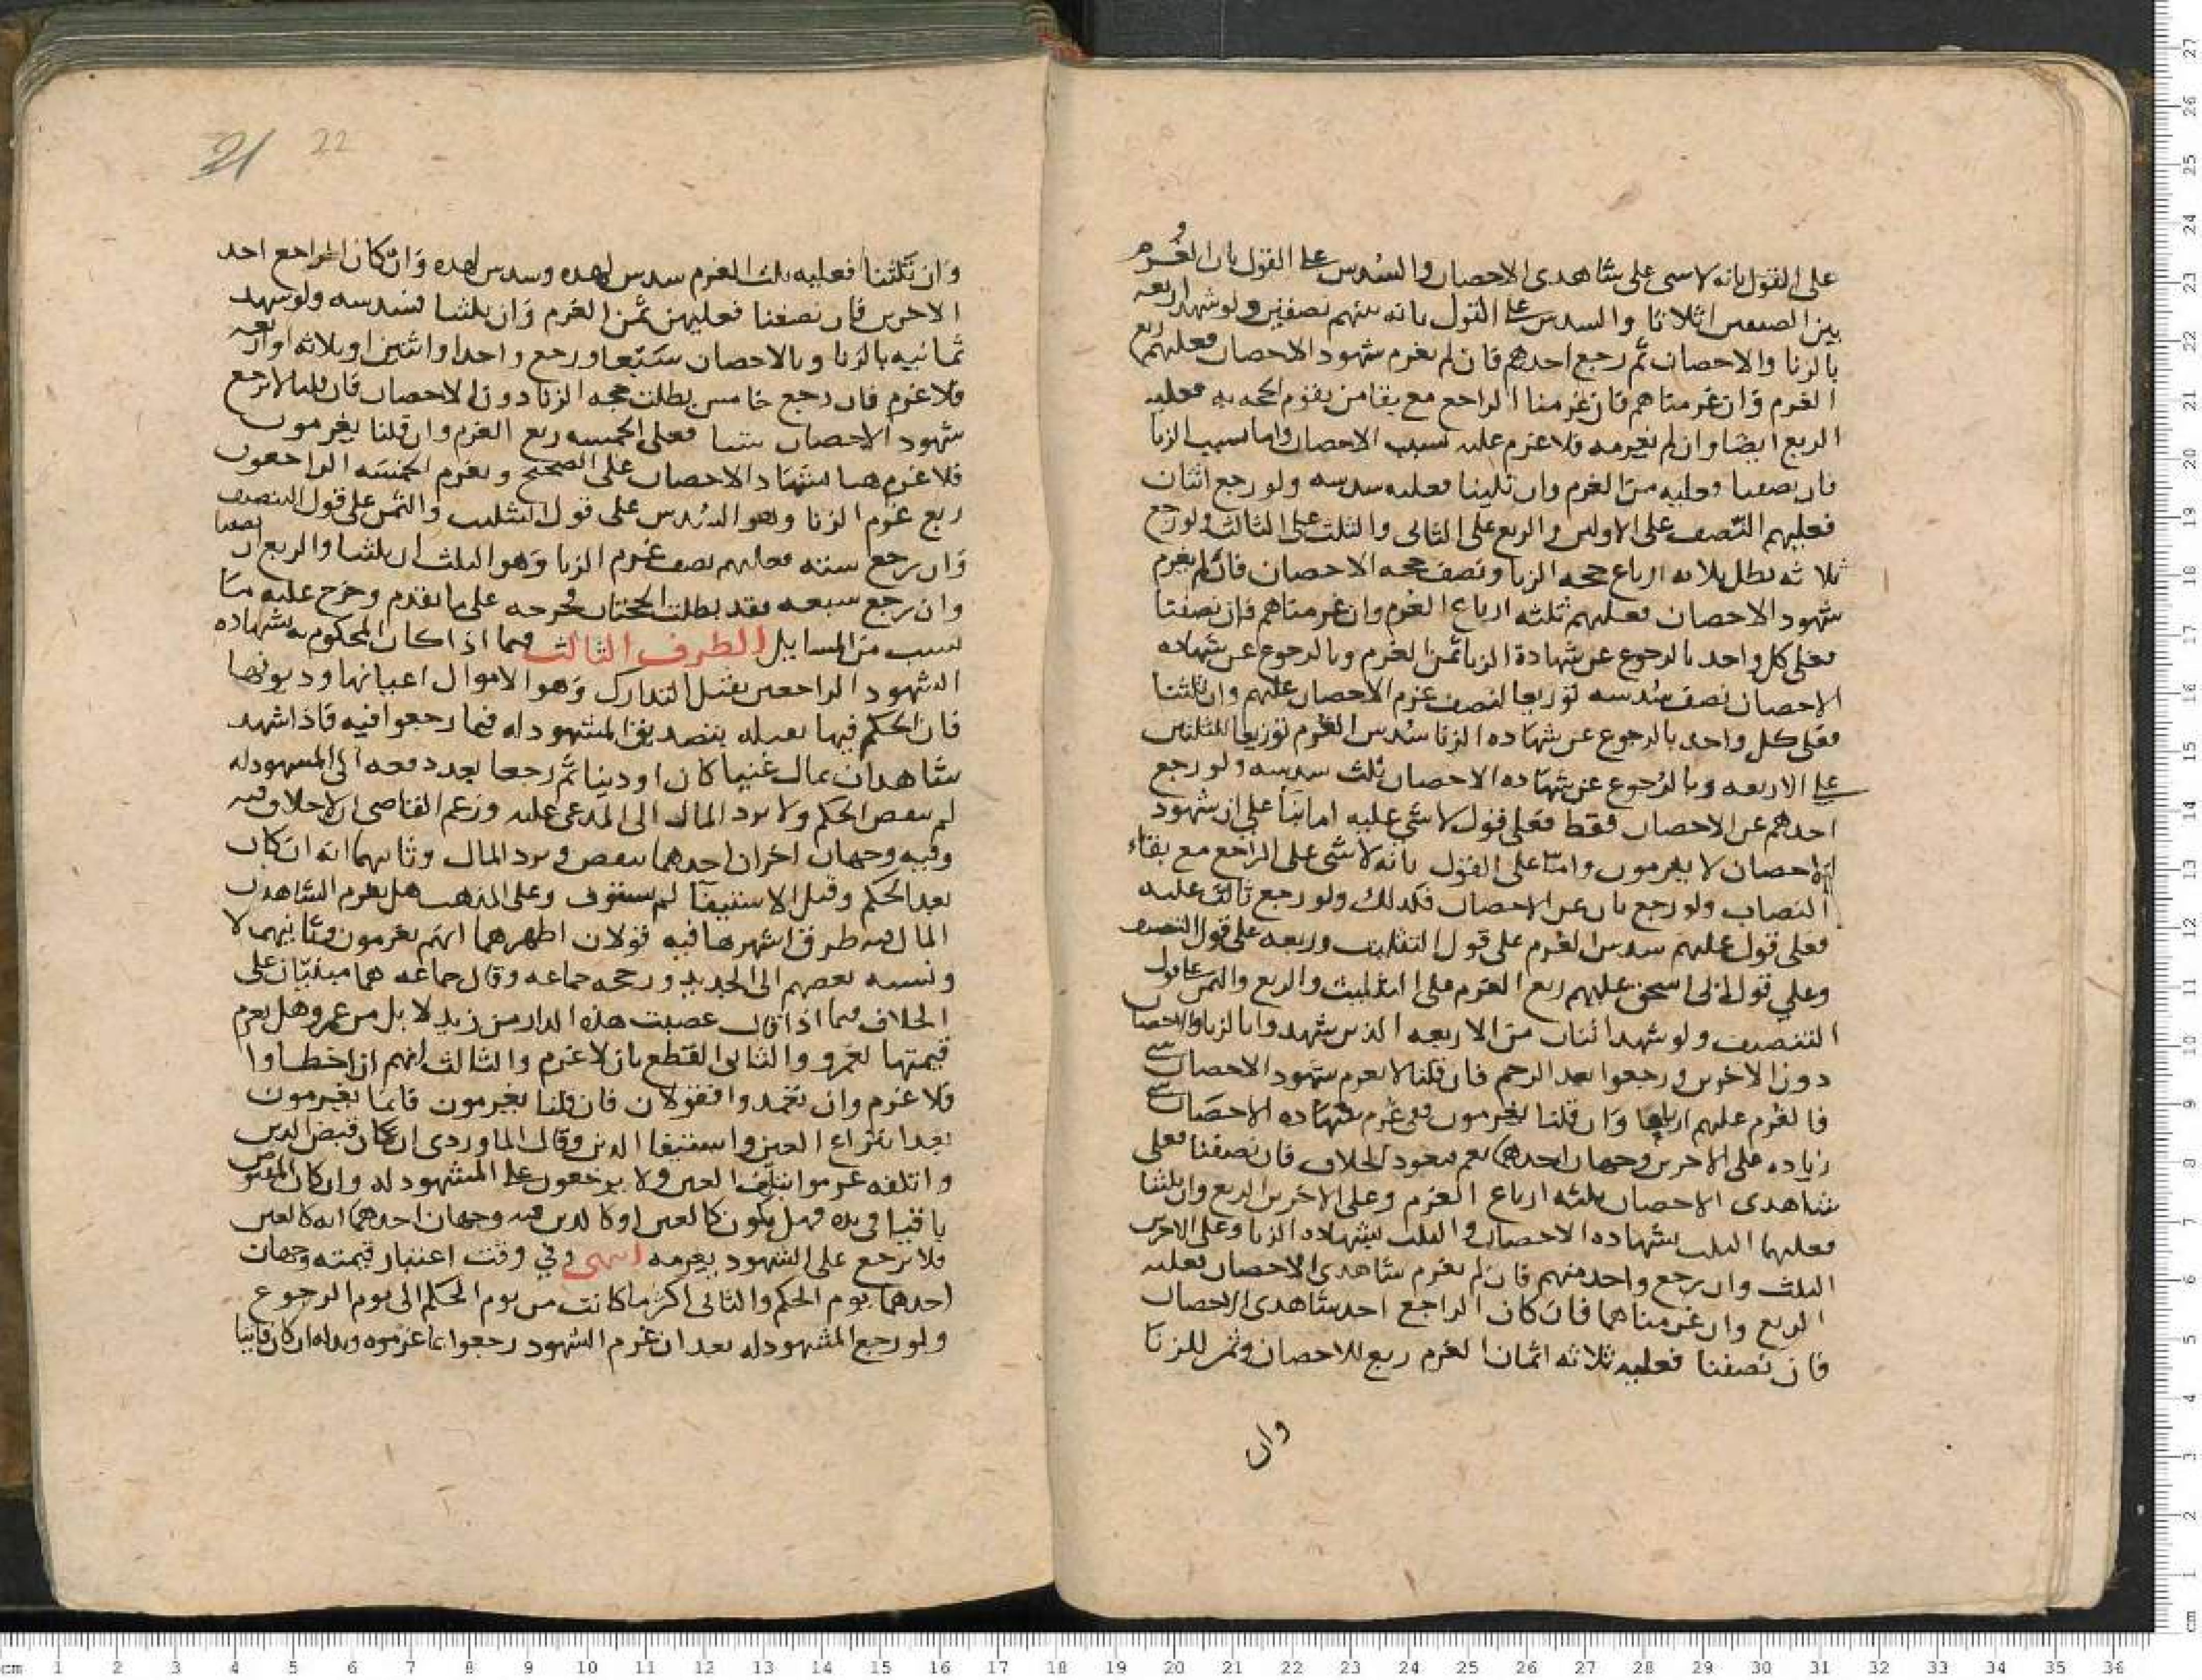 على القول بانه لا سى على شاهدى الاحصان والسدس على القول بان الغرم
بين الصنفين اثلاثا والسدس على القول بانه بينهم نصفين ولو شهد اربعه
بالزنا والاحصان ثم رجع احدهم فان لم يغرم شهود الاحصان فعليهم ربع
الغرم وان غرمناهم فان غرمنا الراجع مع بقا من يقوم الحجه به فعليه
الربع ايضا وان لم نغرمه فلا غرم عليه بسبب الاحصان واما بسبب الزنا
فان نصفنا فعليه من الغرم وان ثلثنا فعليه سدسه ولو رجع اثنان
فعليهم النصف على الاولين والربع على الثانى والثلث على الثالث ولو رجع
ثلاثه بطل ثلاثه ارباع حجه الزنا ونصف حجه الاحصان فان لم يغرم
شهود الاحصان فعليهم ثلثه ارباع الغرم وان غرمناهم فان نصفنا
فعلى كل واحد بالرجوع عن شهادة الزنا ثمن الغرم وبالرجوع عن شهاده
الاحصان نصف سدسه توزيعا لنصف غرم الاحصان عليهم وان ثلثنا
فعلى كل واحد بالرجوع عن شهاده الزنا سدس الغرم توزيعا للثلثين
على الاربعه وبالرجوع عن شهاده الاحصان ثلث سدسه ولو رجع
احدهم عن الاحصان فقط فعلى قول لا شي عليه اما بنا على ان شهود
الاحصان لا يغرمون واما على القول بانه لا شى على الراجع مع بقاء
النصاب ولو رجع ثان عن الاحصان فكذلك ولو رجع ثالث عليه
فعلى قول عليهم سدس الغرم على قول التثليث وربعه على قول التنصيف
وعلي قول ابى اسحق عليهم ربع الغرم على التثليث والربع والثمن على قول
التنصيف ولو شهد اثنان من الاربعه الذين شهدوا بالزنا والاحصان
دون الاخرين ورجعوا بعد الرجم فان قلنا لا يغرم شهود الاحصان شي
فالغرم عليهم ارباعا وان قلنا يغرمون ففى غرم شهاده الاحصان شي
زياده على الاخرين وجهان احدهما نعم فيعود الخلاف فان نصفنا فعلى
شاهدى الاحصان ثلثه ارباع الغرم وعلى الاخرين الربع وان ثلثنا
فعليهما الثلث بشهاده الاحصان والثلث بشهاده الزنا وعلى الاخرين
الثلث وان رجع واحد منهم فان لم يغرم شاهدى الاحصان فعليه
الربع وان غرمناهما فان كان الراجع احد شاهدى الاحصان
فان نصفنا فعليه ثلاثه اثمان الغرم ربع للاحصان وثمن للزنا
وان
21 22
وان ثلثنا فعليه ثلث الغرم سدس لهذه وسدس لهذه وان كان الراجع احد
الاخرين فان نصفنا فعليه ثمن الغرم وان ثلثنا فسدسه ولو شهد
ثمانيه بالزنا وبالاحصان ورجع واحدا واثنين او ثلاثه او اربعه
فلا غرم فان رجع خامس بطلت حجه الزنا دون الاحصان فان قلنا لا يرجع
شهود الاحصان شيا فعلى الخمسه ربع الغرم وان قلنا يغرمون
فلا غرم هنا بشهاد الاحصان على الصحيح ويغرم الخمسه الراجعون
ربع غرم الزنا وهو السدس على قول التثليث والثمن على قول التنصيف
وان رجع سته فعليهم نصف غرم الزنا وهو الثلث ان ثلثنا والربع ان نصفنا
وان رجع سبعه فقد بطلت الحجتان فخرجه على ما تقدم وخرج عليه ما
نسب من المسايل الطرف الثالث فيما اذا كان المحكوم به شهاده
الشهود الراجعين يقبل التدارك وهو الاموال اعيانها وديونها
فان الحكم فيها يقبله بتصديق المشهود له فيما رجعوا فيه فاذا شهد
شاهدان بمال عينا كان او دينا ثم رجعا بعد دفعه الى المشهود له
لم ينقض الحكم ولا يرد المال الى المدعى عليه وزعم القاضى ان لا خلاف فيه
وفيه وجهان اخران احدهما ينقض ويرد المال وثانيهما انه ان كان
بعد الحكم وقبل الاستيفا لم يستوف وعلى المذهب هل يغرم الشاهدان
المال فيه طرق اشهرها فيه قولان اظهرهما انهم يغرمون وثانيهما لا
ونسبه بعضهم الى الجديد ورجحه جماعه وقال جماعه هما مبنيان على
الخلاف فيما اذا قال غصبت هذه الدار من زيد لا بل من عمرو هل يغرم
قيمتها لعمرو والثانى القطع بان لا غرم والثالث انهم ان اخطاوا
فلا غرم وان تعمدوا فقولان فان قلنا يغرمون فانما يغرمون
بعد انتزاع العين واستيفا الدين وقال الماوردى ان كان قبض الدين
واتلفه غرموا بتلف العين ولا يرجعون على المشهود له وان كان المقبوض
باقيا فى يده فهل يكون كالعين او كالدين فيه وجهان احدهما انه كالعين
فلا يرجع على الشهود بغرمه انتهى وفي وقت اعتبار قيمته وجهان
احدهما يوم الحكم والثانى اكثر ما كانت من يوم الحكم الى يوم الرجوع
ولو رجع المشهود له بعد ان غرم الشهود رجعوا بما غرموه وبدله ان كان فانيا